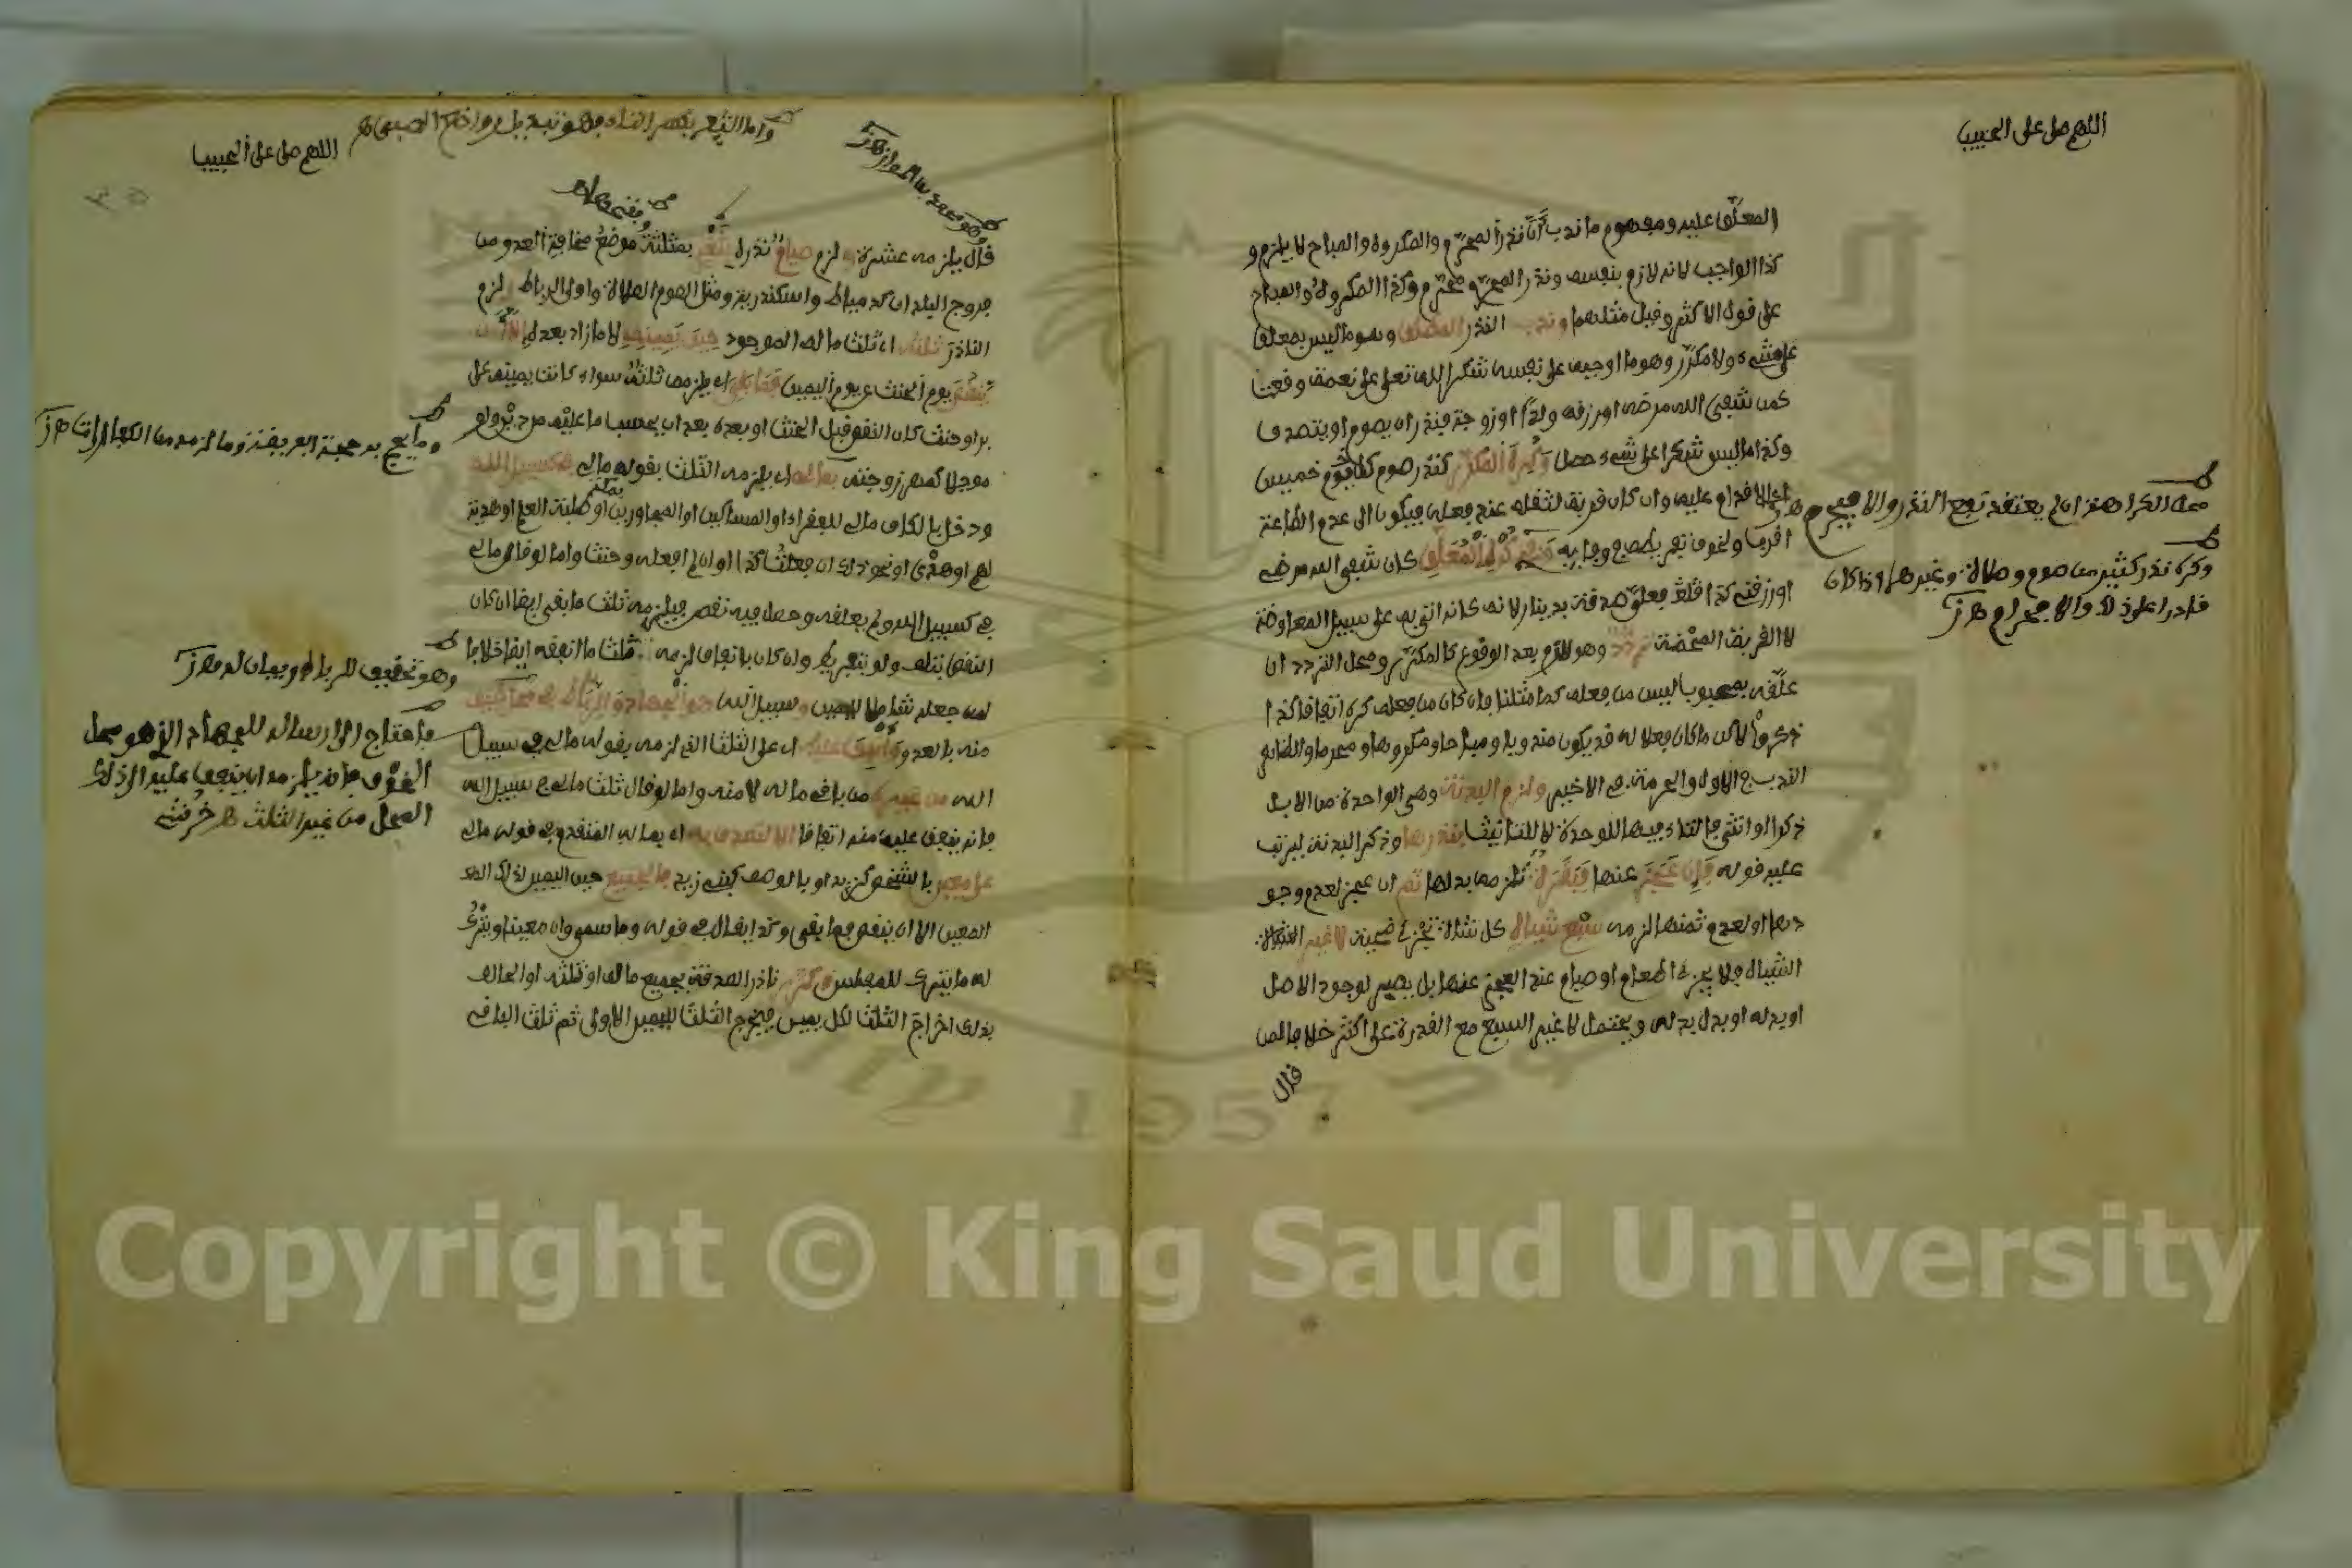 اللهم صل على الحبيب
المعلّق عليه ومفهوم ما ندب أنّ نذر المحرّم والمكروه والمباح لا يلزم و
كذا الواجب لانه لازم بنفسه ونذر المحرّم محرّم وكذا المكروه والمباح
على قول الاكثر وقيل مثلهما وندب النذر المطلق وهو ما ليس بمعلق
على شيء ولا مكرّر وهو ما اوجبه على نفسه شكرا لله تعلى على نعمة وقعت
كمن شفى الله مرضه او رزقه ولدا او زوجة فنذر ان يصوم او يتصدق
وكذا ما ليس شكرا على شيء حصل وكره المكرّر كنذر صوم كل يوم خميس
اي الاقدام عليه وان كان قربة لثقله عند فعله فيكون الى عدم الطاعة
اقرب ولخوف تفريطه في وفايه وفي كره المعلّق كان شفى الله مرضي
او رزقني كذا فلله فعليّ صدقة بدينار لانه كانه اتى به على سبيل المعاوضة
لا القربة المحضة تردد وهو لازم بعد الوقوع كالمكرّر ومحل التردد ان
علّقه بمحبوب ليس من فعله كما مثلنا فان كان من فعله كره اتفاقا كذا
ذكروا لاكن ما كان فعلا له قد يكون مندوبا ومباحا ومكروها ومحرما والظاهر
الندب في الاول والحرمة في الاخير ولزم البدنة وهي الواحدة من الابل
ذكرا او انثى فالتاء فيها للوحدة لا للتانيث بنذرها وذكر البدنة ليرتب
عليه قوله فان عجز عنها فبقرة تلزمه بدلها ثم ان عجز لعدم وجو
دها او لعدم ثمنها لزمه سبع شياه كل شاة تجزئ ضحية لا غير
الشياه فلا يجزئ اطعام او صيام عند العجز عنها بل يصبر لوجود الاصل
او بدله او بدل بدله ويحتمل لا غير السبع مع القدرة على اكثر خلافا لمن
قال
محل الكراهة ان لم يعتقد نفع النذر والا فيحرم
وكره نذر كثير من صوم وصلاة وغيرها اذا كان
قادرا على ذلك والا فحرام
اللهم صل على الحبيب
قال يلزمه عشرة ولزم صيام نذره بثغر بمثلثة موضع مخافة العدو من
فروج البلدان كدمياط واسكندرية ومثل الصوم الصلاة واولى الرباط ولزم
الناذر ثلثه اي ثلث ماله الموجود حين يمينه لا ما زاد بعده الا ان
ينقص يوم الحنث عن يوم اليمين فما بقي اي يلزمه ثلثه سواء كانت يمينه على
بر او حنث كان النقص قبل الحنث او بعده بعد ان يحسب ما عليه من دين ولو
موجلا كمهر زوجته بماله اي يلزمه الثلث بقوله مالي في كسبيل الله
ودخل بالكاف مالي للفقراء او المساكين او المجاورين او طلبة العلم او هدية
لهم او هدي او نحو ذلك ان فعلت كذا او ان لم افعله وحنث واما لو قال مالي
في كسبيل الله ولم يعلقه وحصل فيه نقص فيلزمه ثلث ما بقي ايضا ان كان
النقص بتلف ولو بتفريط وان كان بانفاق لزمه ثلث ما انفقه ايضا خلافا
لمن جعله شاملا لليمين وسبيل الله هو الجهاد والرباط في محل خيف
منه بالعدو وانفق عليه اي على الثلث الذي لزمه بقوله مالي في سبيل
الله من غيره من باقي ماله لا منه واما لو قال ثلث مالي في سبيل الله
فانه ينفق عليه منه اتفاقا الا لتصدق به اي بماله المتقدم في قوله مالي
على معين بالشخص كزيد او بالوصف كبني زيد فالجميع حين اليمين لذلك
المعين الا ان ينقص فما بقي وكذا يقال في قوله وما سمى وان معينا ويترك
له ما يترك للمفلس وكرر ناذر الصدقة بجميع ماله او ثلثه او الحالف
بذلك اخراج الثلث لكل يمين فيخرج الثلث لليمين الاولى ثم ثلث الباقي
وما يحج به حجة الفريضة وما لزمه من الكفارات
وهو تخفيف
واحتاج الى ارساله للجهاد الذي هو محل
الخوف فانه يلزمه ان ينفق عليه الى ذلك
المحل من غير الثلث
Copyright © King Saud University
1957